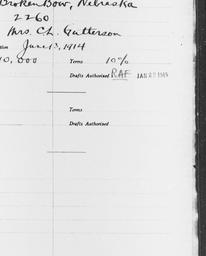 Broken Bow, Nebraska
2260
Mrs. C.L. Gutterson
tion June 13, 1914
10,000 Terms 10%
Drafts Authorized RAF JAN 28 1915
Terms
Drafts Authorized